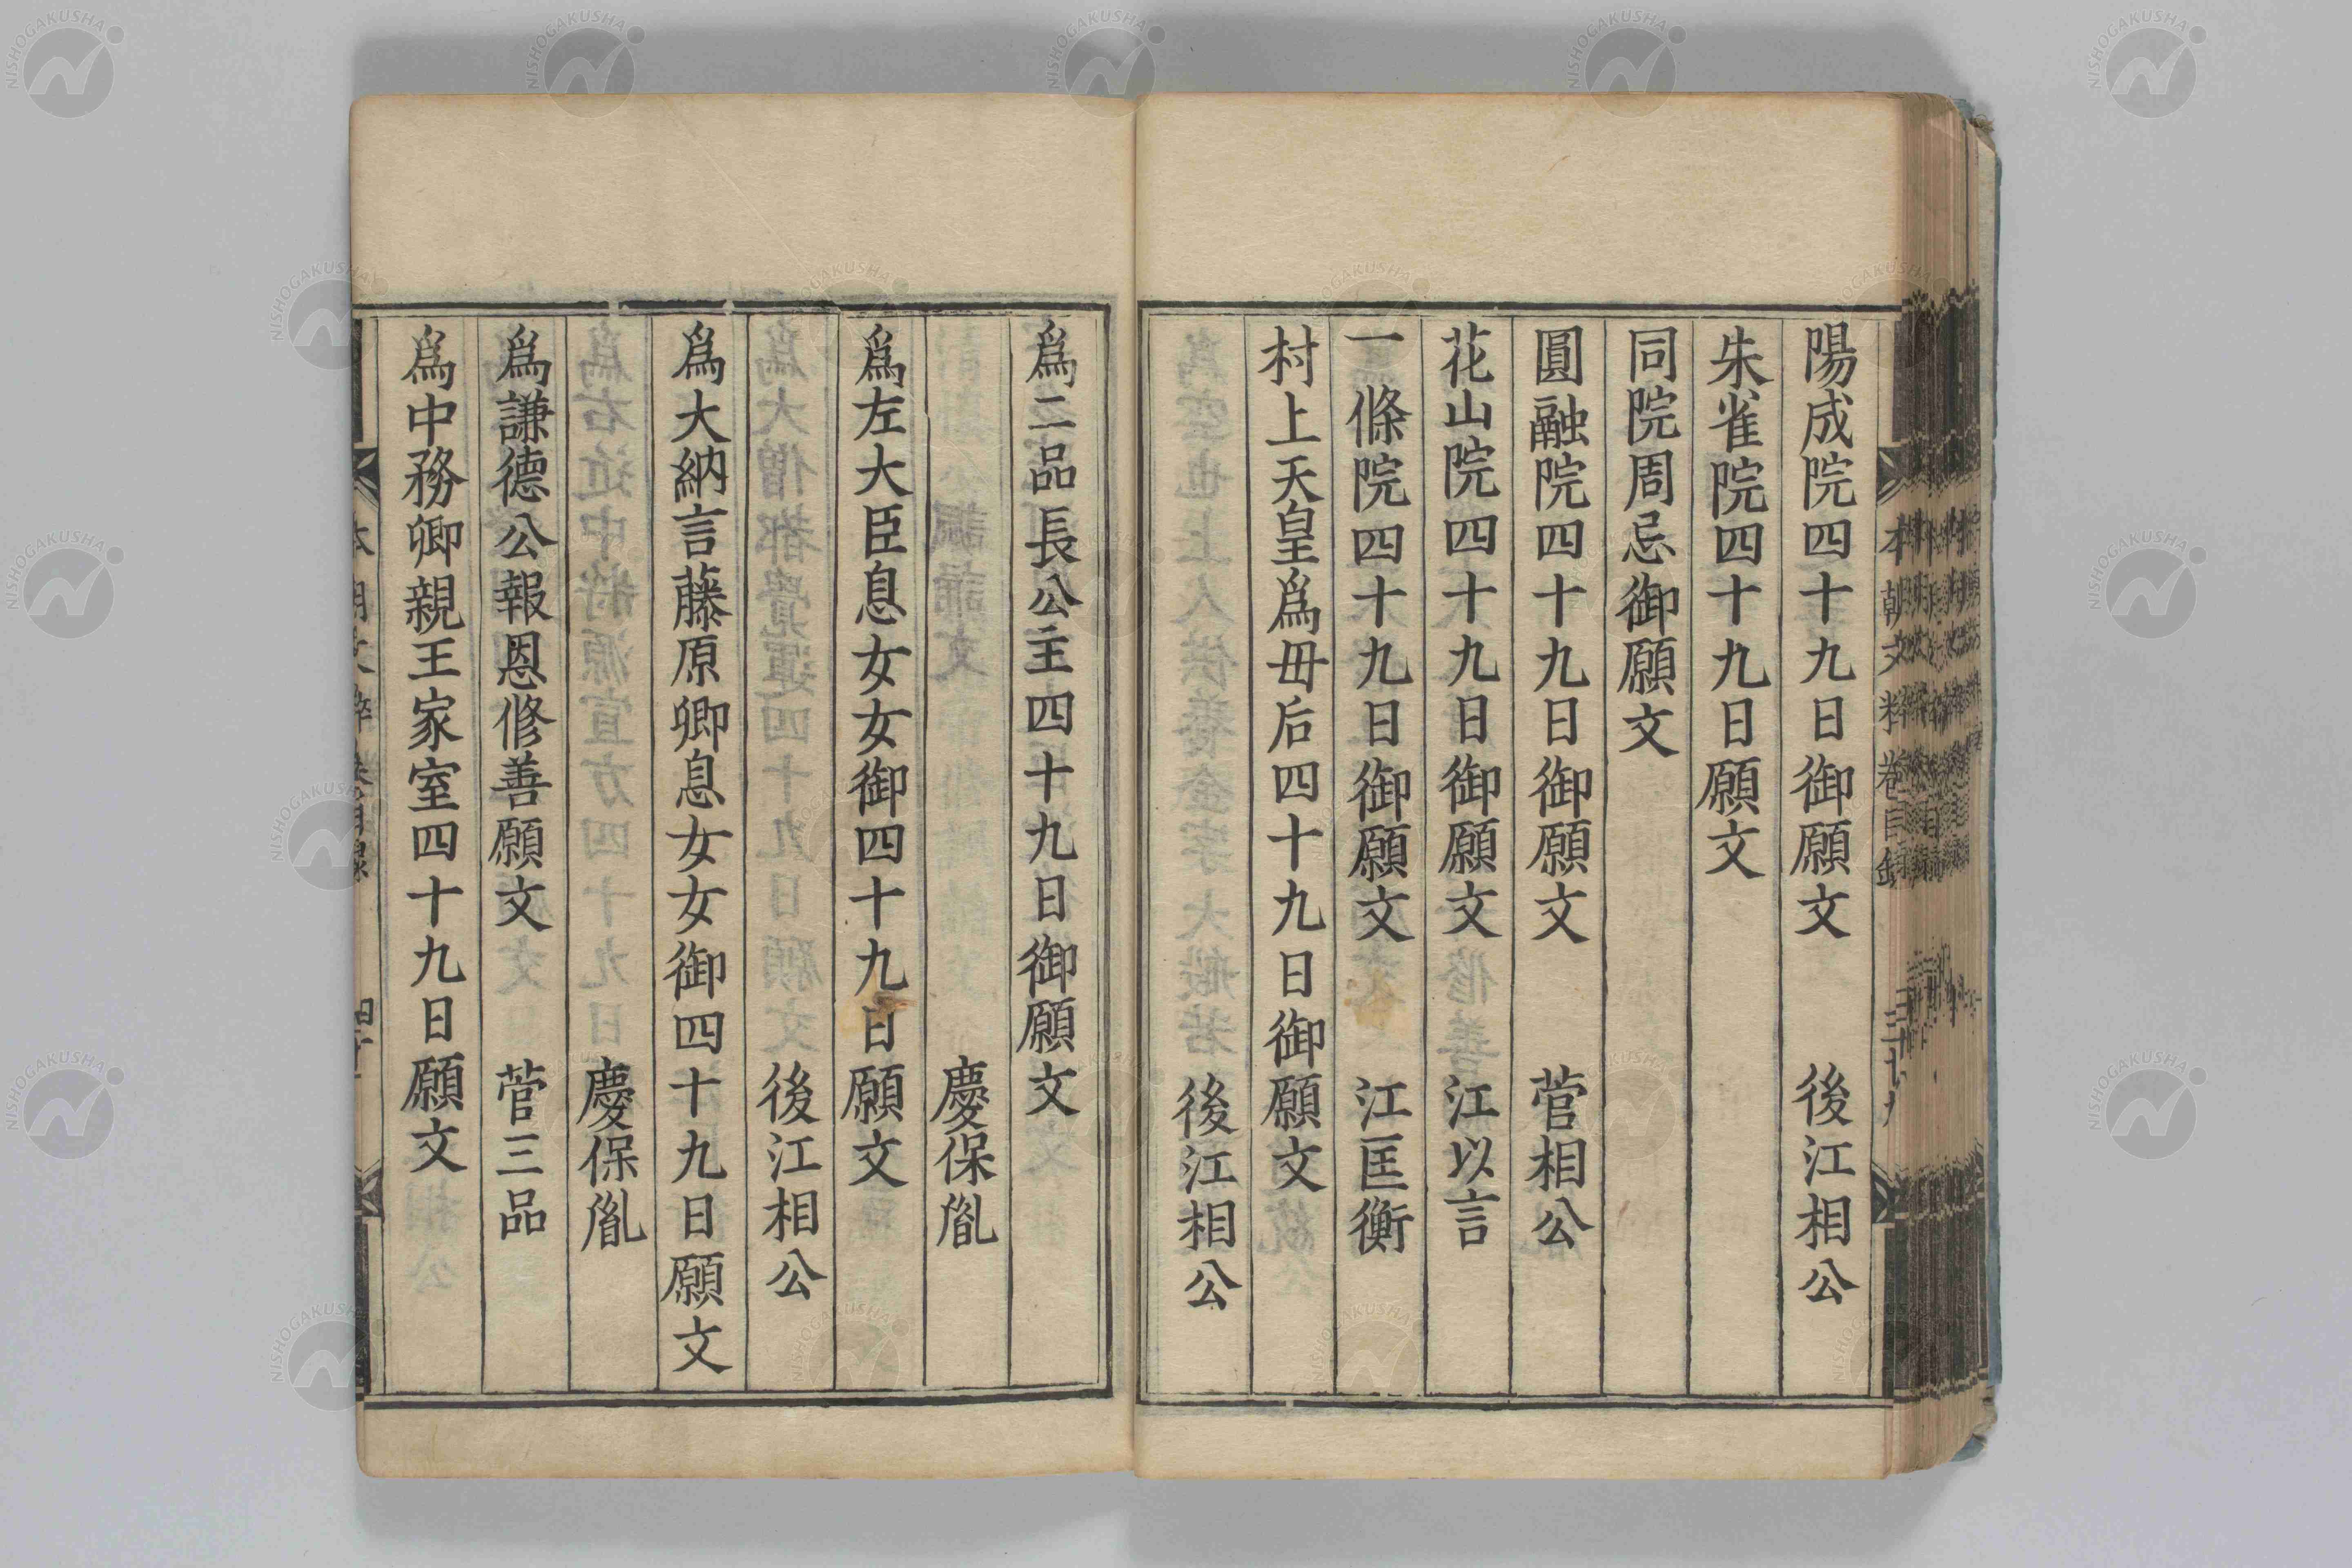 陽成院四十九日御願文　後江相公
朱雀院四十九日願文
同院周忌御願文
圓融院四十九日御願文　菅相公
花山院四十九日御願文　江以言
一條院四十九日御願文　江匡衡
村上天皇爲毋后四十九日御願文
後江相公
爲二品長公主四十九日御願文
慶保胤
爲左大臣息女女御四十九日願文
後江相公
爲大納言藤原卿息女女御四十九日願文
慶保胤
爲謙德公報恩修善願文　菅三品
爲中務卿親王家室四十九日願文
NISHOGAKUSHA